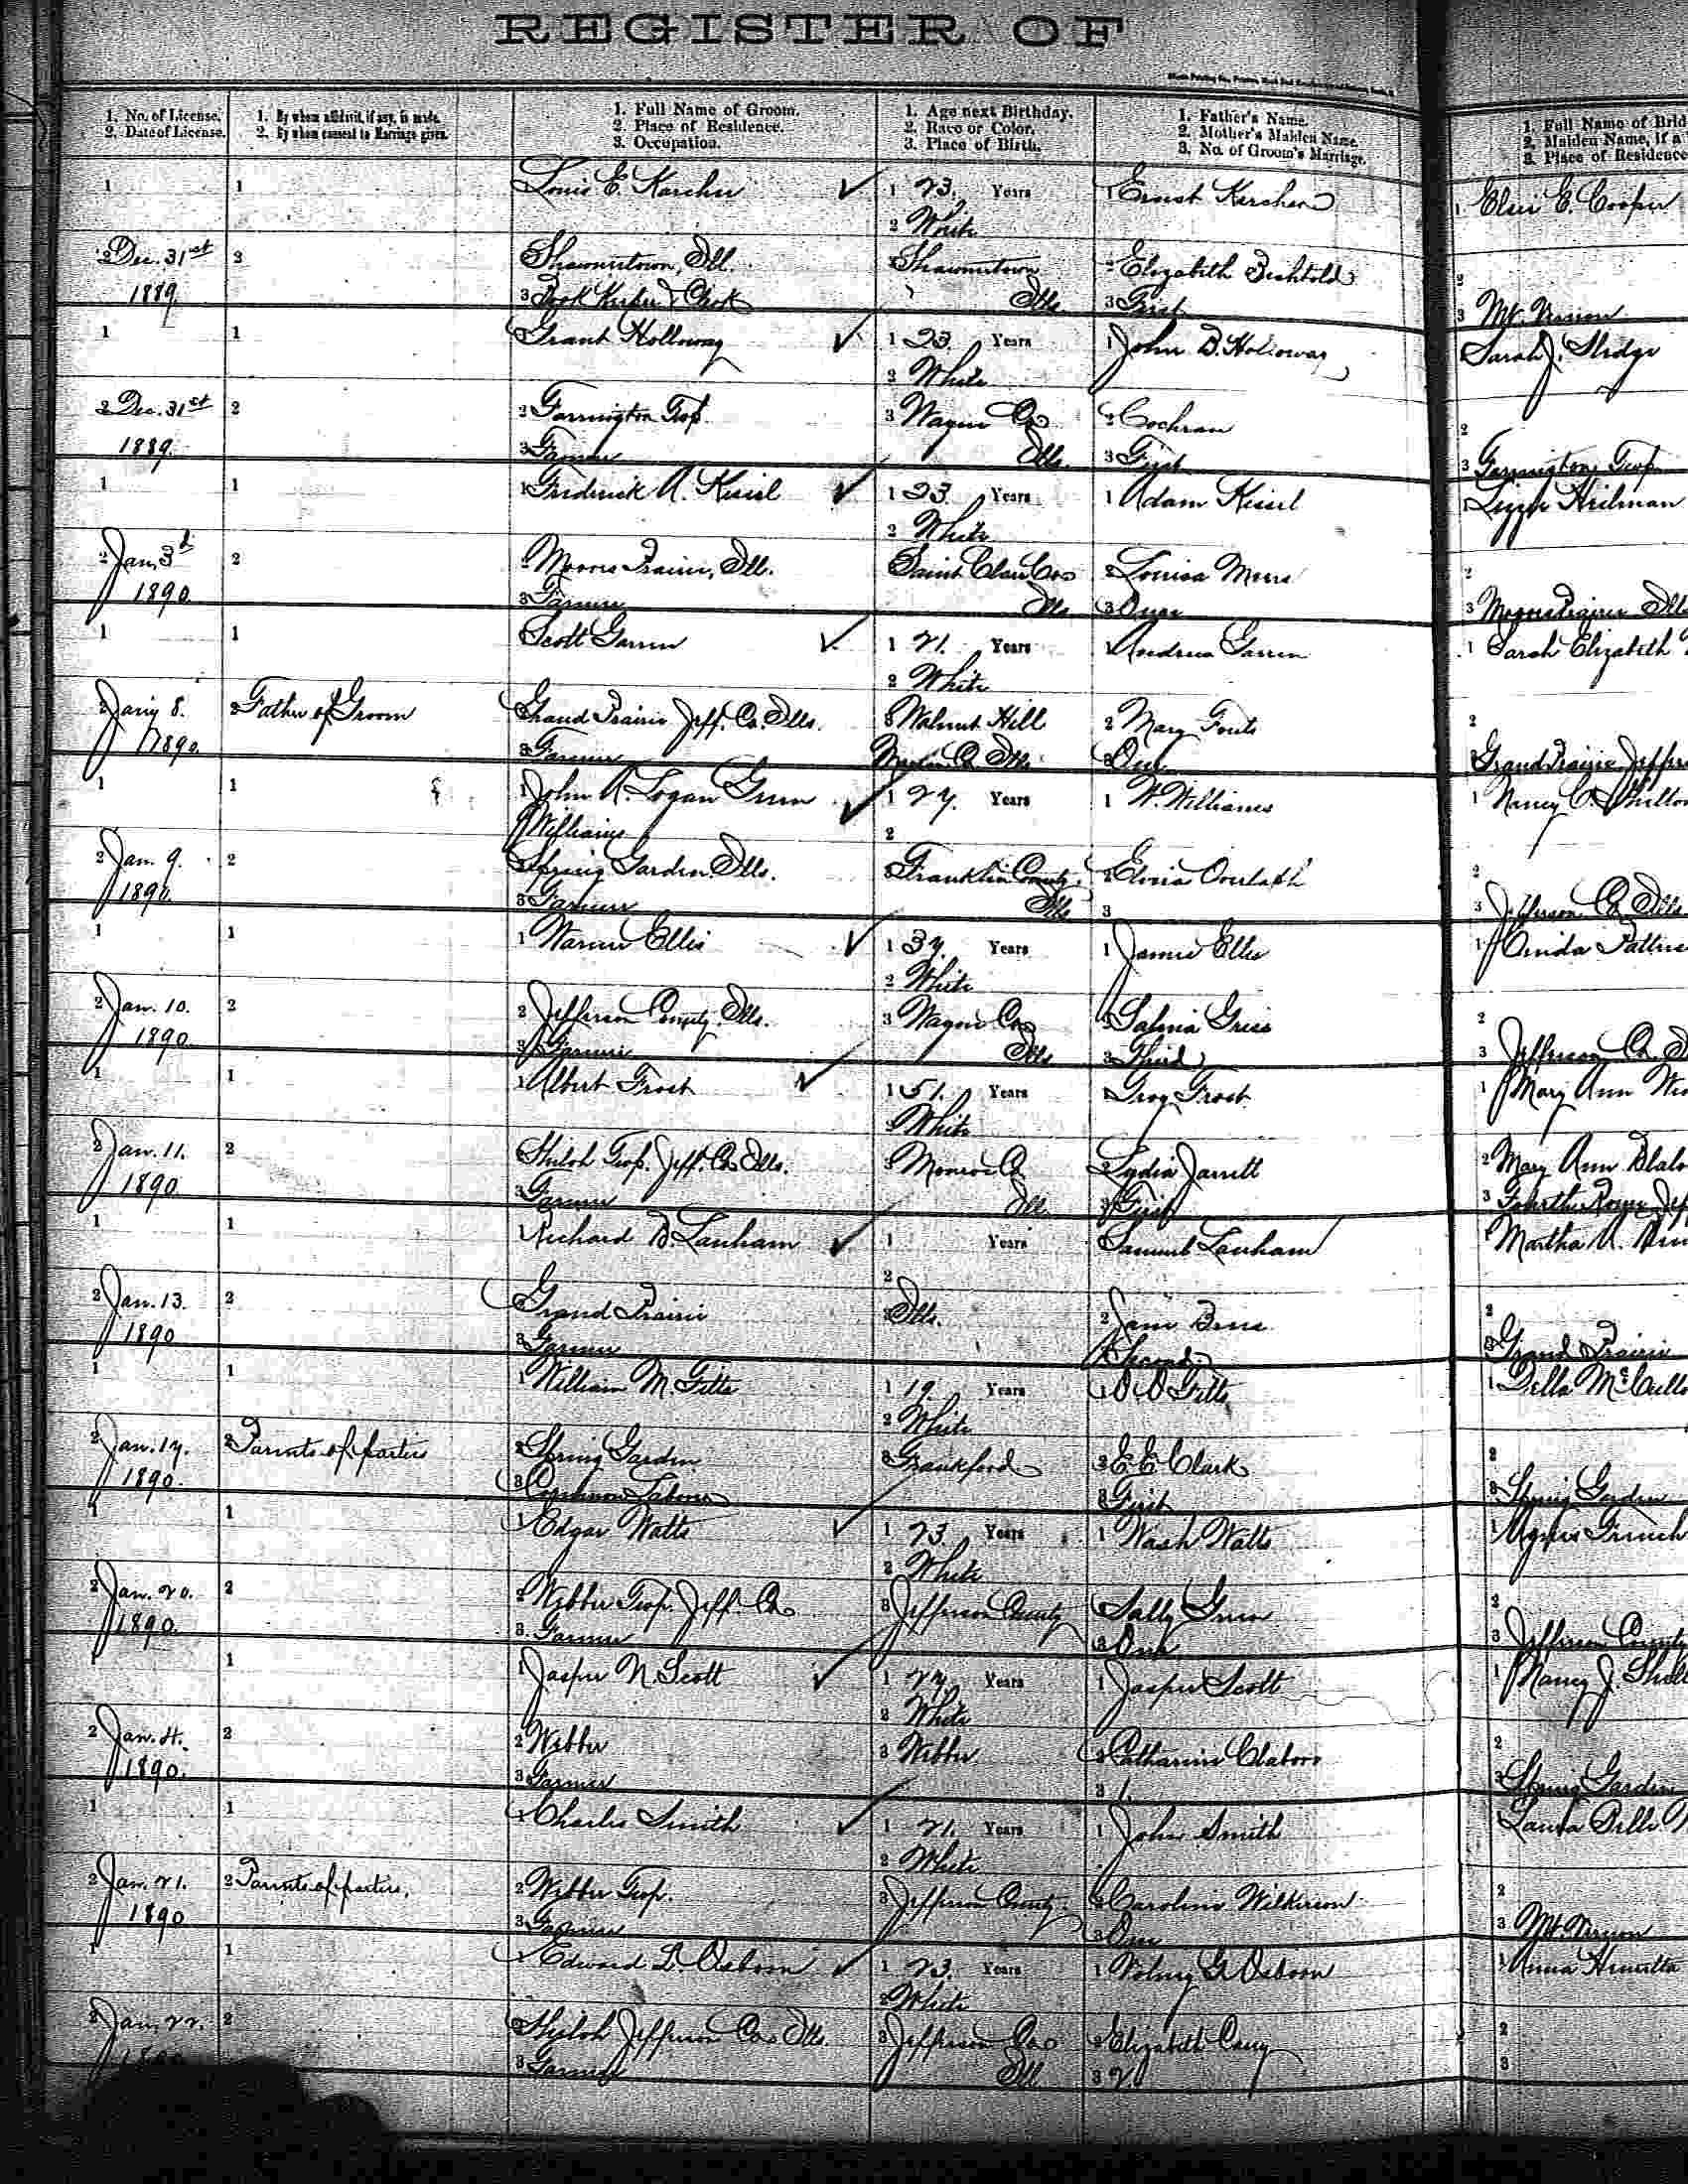 REGISTER OF
1. No. of License.
2. Date of License.
1. By whom affidavit, if any, is made.
2. By whom consent to Marriage given.
1. Full Name of Groom.
2. Place of Residence.
3. Occupation.
1. Age next Birthday.
2. Race or Color.
3. Place of Birth.
1. Father's Name.
2. Mother's Maiden Name.
3. No. of Groom's Marriage.
1. Full Name of Brid
2. Maiden Name, if a
3. Place of Residence
1 1 Louis E. Karcher 1 23. Years 1 Ernst Karcher 1 Elsie E. Cooper
2 White
2 Dec. 31st 2 Shawneetown, Ill. Shawneetown 2 Elizabeth Bechtold 2
1889 3 Book Keeper & Clerk Ills. 3 First 3 Mt. Vernon
1 1 Grant Holloway 1 23. Years 1 John B. Holloway Sarah J. Sledge
2 White
2 Dec. 31st 2 2 Farrington Twp. 3 Wayne Co 2 Cochran 2
1889. 3 Farmer Ills. 3 First 3 Farrington Twp.
1 1 1 Frederick A. Kissel 1 23. Years 1 Adam Kissel Lizzie Heilman
2 White
2 Jan. 3d 2 Moores Prairie, Ill. Saint Clair Co 2 Louisa 2
1890. 3 Farmer Ills. 3 One 3 Moores Prairie Ills
1 1 Scott Garren 1 21. Years 1 Andrew Garren 1 Sarah Elizabeth
2 White
2 Jany 8. 2 Father of Groom Grand Prairie Jeff. Co. Ills. 3 Walnut Hill 2 Mary Fouts 2
1890. 3 Farmer Marion Co Ills. 3 One Grand Prairie Jeffer
1 1 1 John A. Logan Green 1 27. Years 1 W. Williams 1 Nancy C. Shelton
Williams 2
2 Jan. 9. 2 Spring Garden Ills. Franklin County 2
1890. 3 Farmer Ills. 3 3 Jefferson Co. Ills.
1 1 1 Warner Ellis 1 37. Years 1 James Ellis 1
2 White
2 Jan. 10. 2 2 Jefferson County, Ills. 3 Wayne Co 2
1890. 3 Farmer Ills. 3 Third 3 Jefferson Co.
1 1 1 Albert Frost 1 51. Years 1 Troy Frost 1 Mary Ann
2 White
2 Jan. 11. 2 Shiloh Twp. Jeff. Co Ills. 3 Monroe Co 2 Lydia Jarrell 2 Mary Ann
1890. 3 Farmer Ill. 3 First 3
1 1 1 Richard B. Lanham 1 Years Samuel Lanham Martha A.
2
2 Jan. 13. 2 Grand Prairie 3 Ills. 2 Jane 2
1890 3 Farmer Second 3 Grand Prairie
1 1 1 William M. Fitts 1 19. Years 1 Fitts 1 Della McCullo
2 White
2 Jan. 17. 2 Parents of parties 2 Spring Garden 3 Frankford 2 E. E. Clark 2
1890. 3 Common Laborer 3 First 3 Spring Garden
1 1 1 Edgar Watts 1 23. Years 1 Wash Watts 1 Agnes French
2 White
2 Jan. 20. 2 2 Webber Twp. Jeff. Co 3 Jefferson County 2 Sally Green 2
1890. 3. Farmer 3 One 3 Jefferson County
1 1 1 Jasper N. Scott 1 27. Years 1 Jasper Scott 1 Nancy J.
2 White
2 Jan. 2 2 Webber 3 Webber 2 Catharine 2
1890. 3 Farmer 3 1. 3 Spring Garden
1 1 1 Charles Smith 1 21. Years 1 John Smith Laura Belle
2 White
2 Jan. 21. 2 Parents of parties, 2 Webber Twp. 3 Jefferson County. 2 Caroline Wilkerson 2
1890 3 Farmer 3 One 3 Mt. Vernon
1 1 1 Edward L. Osborn 1 23. Years 1 Volney G. Osborn 1 Anna
2 White
2 Jan. 22. 2 Shiloh Jefferson Co Ills. 3 Jefferson Co 2 Elizabeth Casey 2
3 Farmer Ill 3 2. 3